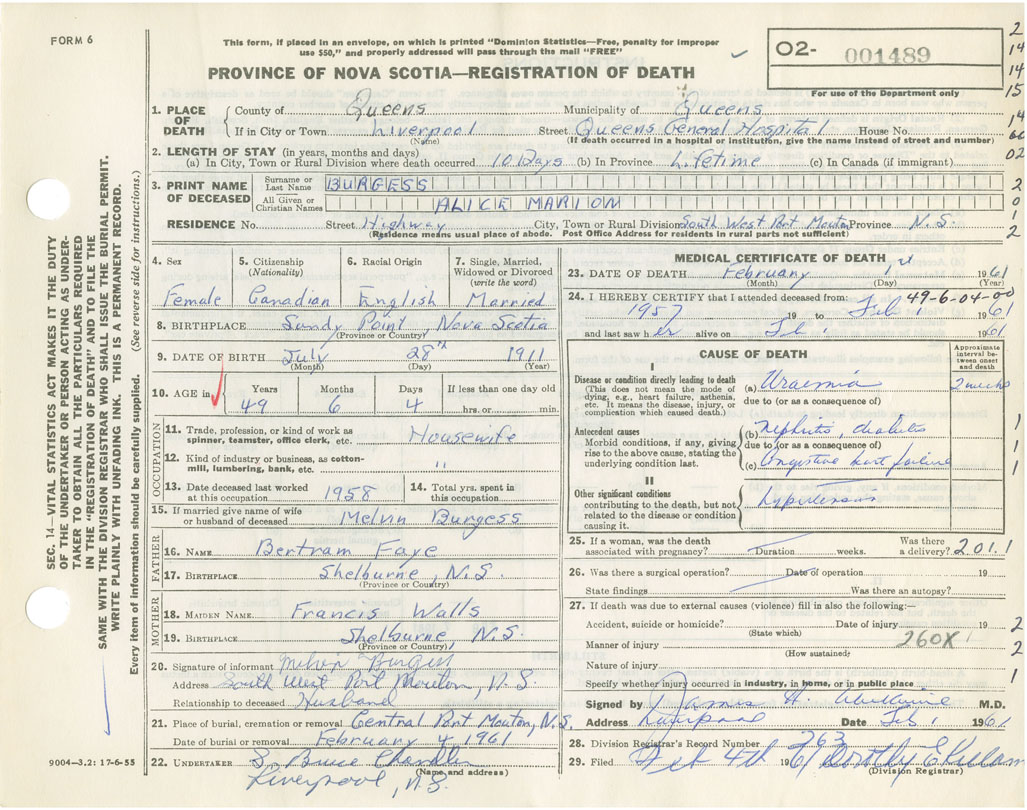 FORM 6
This form, if placed in an envelope, on which is printed "Dominion Statistics—Free, penalty for improper
use $50," and properly addressed will pass through the mail "FREE"
O2- 001489
For use of the Department only
PROVINCE OF NOVA SCOTIA—REGISTRATION OF DEATH
2
14
14
15
14
66
02
2
0
1
2
1. PLACE OF DEATH
County of Queens Municipality of Queens
If in City or Town Liverpool Street Queens General Hospital House No.
(Name) (If death occurred in a hospital or institution, give the name instead of street and number)
2. LENGTH OF STAY (in years, months and days)
(a) In City, Town or Rural Division where death occurred 10 Days (b) In Province Lifetime (c) In Canada (if immigrant)
3. PRINT NAME OF DECEASED
Surname or Last Name BURGESS
All Given or Christian Names ALICE MARION
RESIDENCE No. Street Highway City, Town or Rural Division South West Port Mouton Province N.S.
(Residence means usual place of abode. Post Office Address for residents in rural parts not sufficient)
4. Sex
Female
5. Citizenship (Nationality)
Canadian
6. Racial Origin
English
7. Single, Married, Widowed or Divorced (write the word)
Married
8. BIRTHPLACE Sandy Point, Nova Scotia
(Province or Country)
9. DATE OF BIRTH July 28th 1911
(Month) (Day) (Year)
10. AGE in
Years Months Days If less than one day old
49 6 4 hrs. or min.
OCCUPATION
11. Trade, profession, or kind of work as spinner, teamster, office clerk, etc. Housewife
12. Kind of industry or business, as cotton-mill, lumbering, bank, etc. "
13. Date deceased last worked at this occupation 1958
14. Total yrs. spent in this occupation
15. If married give name of wife or husband of deceased Melvin Burgess
FATHER
16. NAME Bertram Faye
17. BIRTHPLACE Shelburne, N.S.
(Province or Country)
MOTHER
18. MAIDEN NAME Francis Walls
19. BIRTHPLACE Shelburne, N.S.
(Province or Country)
20. Signature of informant Melvin Burgess
Address South West Port Mouton, N.S.
Relationship to deceased Husband
21. Place of burial, cremation or removal Central Port Mouton, N.S.
Date of burial or removal February 4 1961
22. UNDERTAKER S. Bruce Chandler
(Name and address)
Liverpool, N.S.
MEDICAL CERTIFICATE OF DEATH
23. DATE OF DEATH February 1st 1961
(Month) (Day) (Year)
24. I HEREBY CERTIFY that I attended deceased from:
49-6-04-00
1957 19 to Feb 1 1961
and last saw her alive on Feb 1 1961
CAUSE OF DEATH
Approximate interval between onset and death
I
Disease or condition directly leading to death
(This does not mean the mode of dying, e.g., heart failure, asthenia, etc. It means the disease, injury, or complication which caused death.)
(a) Uraemia 2 weeks
due to (or as a consequence of)
Antecedent causes
Morbid conditions, if any, giving rise to the above cause, stating the underlying condition last.
(b) Nephritis, diabetis
due to (or as a consequence of)
(c) Congestive heart failure
II
Other significant conditions
contributing to the death, but not related to the disease or condition causing it.
hypertension
1
1
1
25. If a woman, was the death associated with pregnancy? Duration weeks. Was there a delivery? 201.1
26. Was there a surgical operation? Date of operation 19
State findings Was there an autopsy?
27. If death was due to external causes (violence) fill in also the following:—
Accident, suicide or homicide? Date of injury 19
(State which)
Manner of injury 260X
(How sustained)
Nature of injury
Specify whether injury occurred in industry, in home, or in public place
2
2
1
Signed by James H. M.D.
Address Liverpool Date Feb 1 1961
28. Division Registrar's Record Number 263
29. Filed Feb 4th 1961 Dorothy E Killam
(Division Registrar)
SEC. 14—VITAL STATISTICS ACT MAKES IT THE DUTY
OF THE UNDERTAKER OR PERSON ACTING AS UNDER-
TAKER TO OBTAIN ALL THE PARTICULARS REQUIRED
IN THE "REGISTRATION OF DEATH" AND TO FILE THE
SAME WITH THE DIVISION REGISTRAR WHO SHALL ISSUE THE BURIAL PERMIT.
WRITE PLAINLY WITH UNFADING INK. THIS IS A PERMANENT RECORD.
Every item of information should be carefully supplied. (See reverse side for instructions.)
9004—3.2: 17-6-55